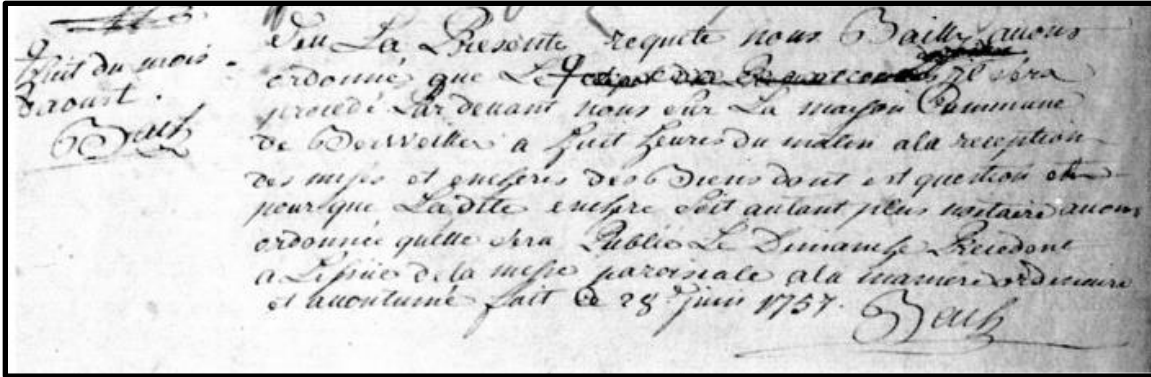 huit du mois
d'aoust.
Bach
Veu La Presente requete nous Bailly avons
ordonné que Le il sera
procedé Par devant nous sur La maison Commune
de Berweiller a huit heures du matin a la reception
des mises et encheres des Biens dont est question et
pour que Ladite enchere soit autant plus nottoire avons
ordonnée quelle sera Publié Le Dimanche Precedent
a L'issüe de la messe paroisiale a la maniere ordinaire
et accoutumé fait ce 28 juin 1757.
Bach